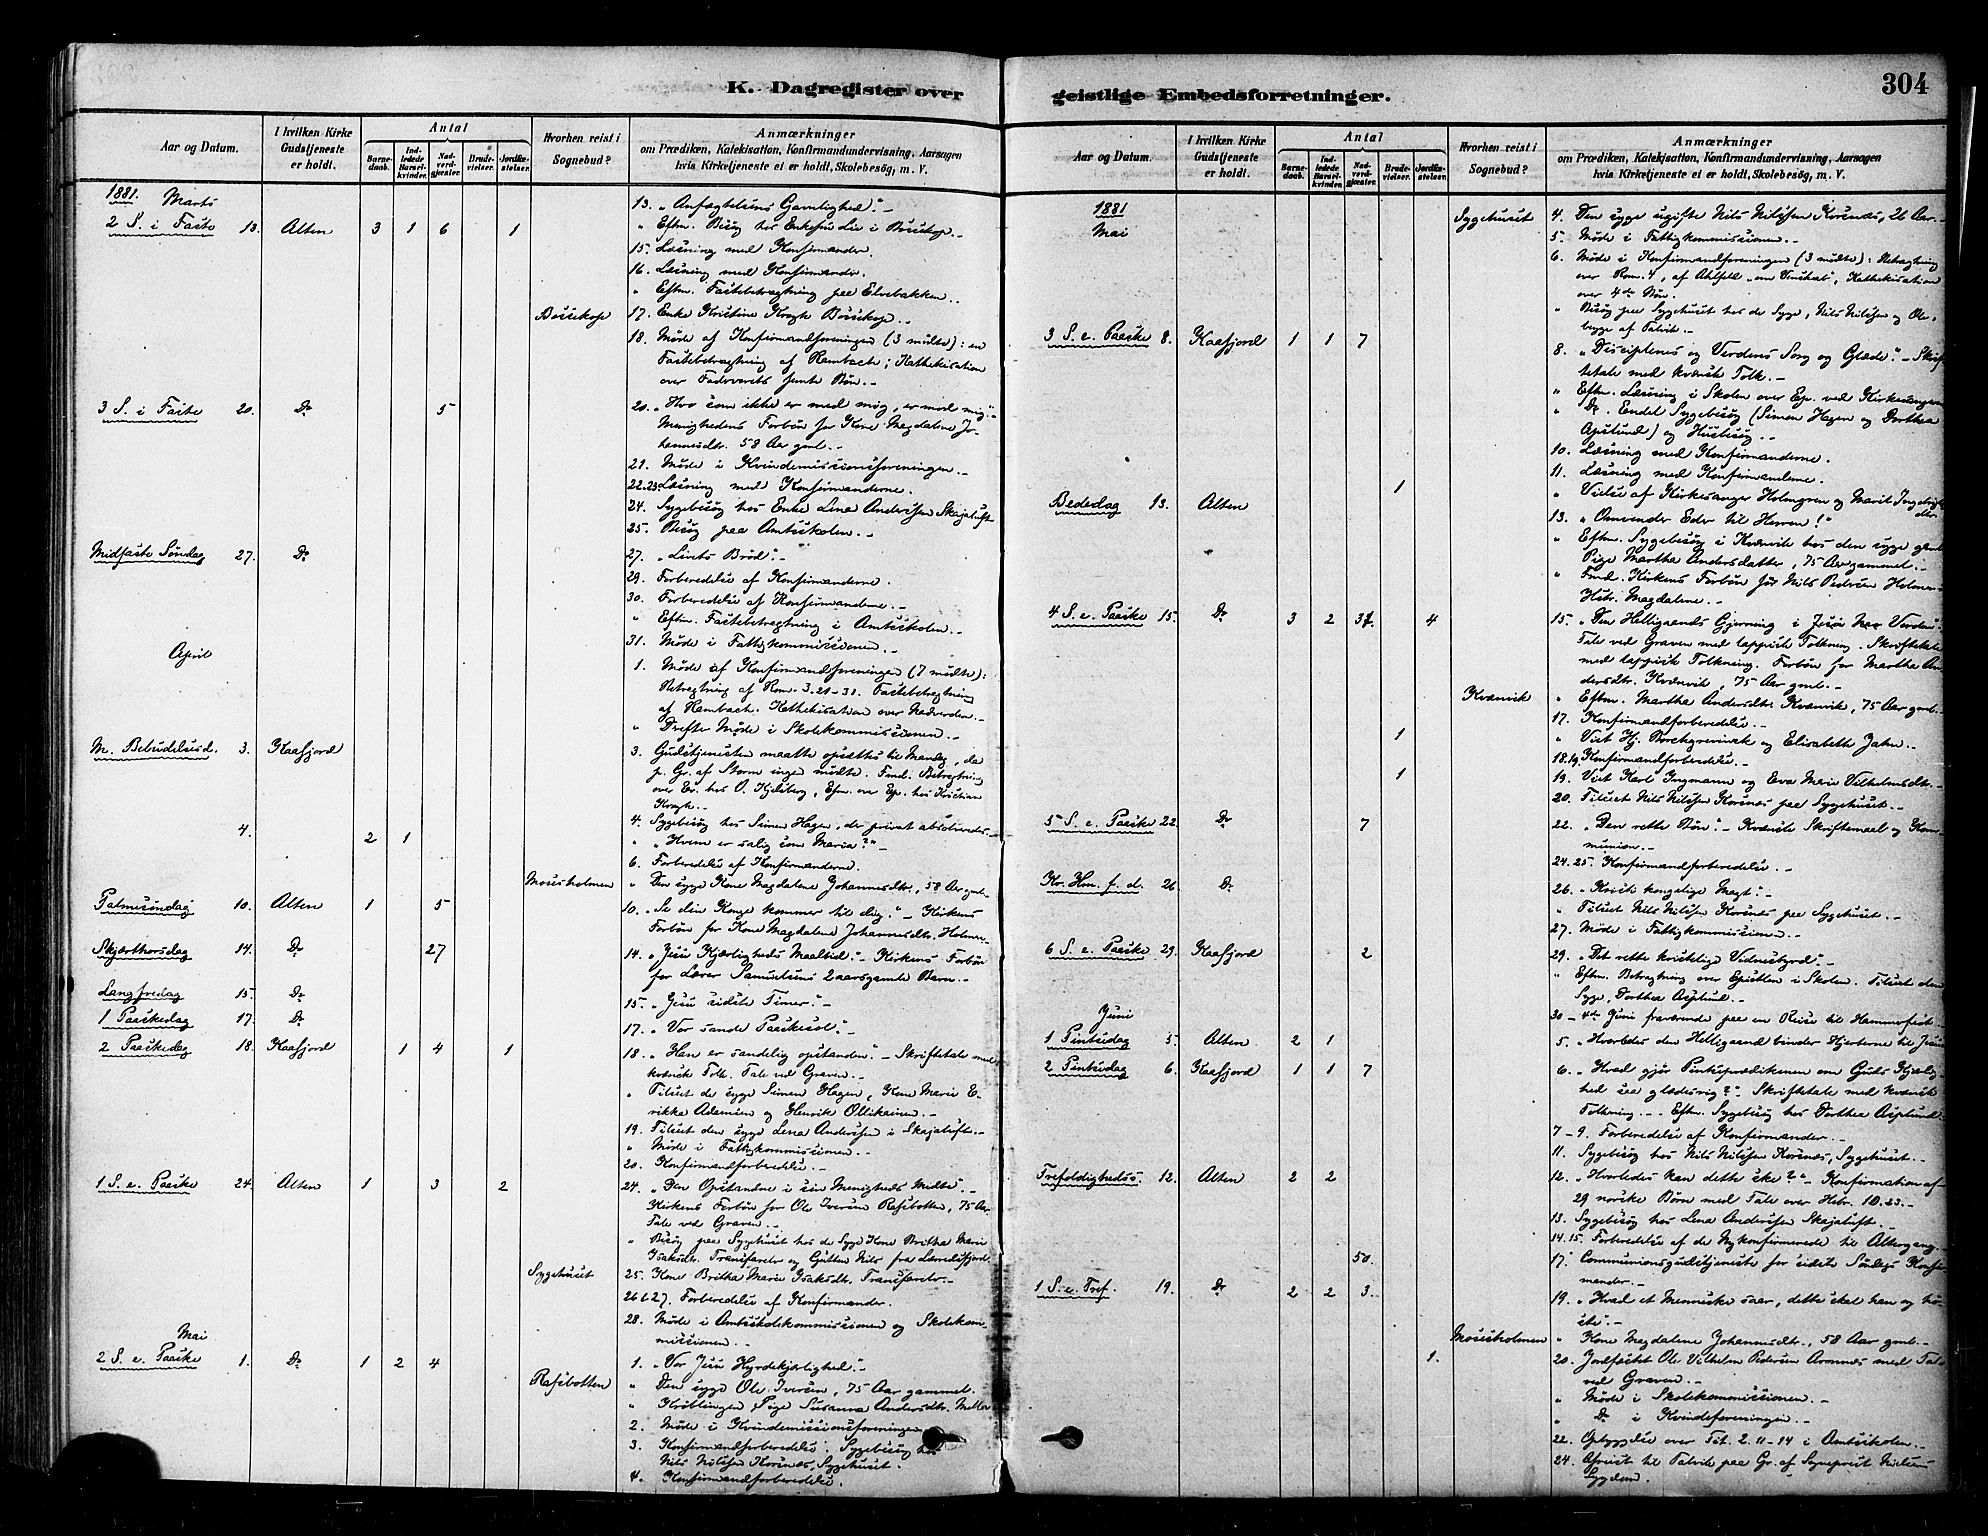 K. Dagregister over
geistlige Embedsforretninger.
304
Aar og Datum.
I hvilken Kirke Gudstjeneste er holdt.
Antal
Barnedaab.
Indledede Barselkvinder.
Nadverdgjæster.
Brudevielser.
Jordfæstelser.
Hvorhen reist i Sognebud?
Anmærkninger
om Prædiken, Katekisation, Konfirmandundervisning, Aarsagen
hvis Kirketjeneste ei er holdt, Skolebesøg, m. V.
1881. Marts
13. „Anfægtelsens Gavnlighed“. -
2 S. i Faste 13. Alten 3 1 6 1
" Eftm. Besøg hos Enkefru Lie i Bossekop. -
15. Læsning med Konfirmander.
16. Læsning med Konfirmander.
" Eftm. Fastebetragtning paa Elvebakken. -
Bossekop 17. Enke Kristine Krogh Bossekop. -
18. Møde af Konfirmandforeningen (3 mødte): en
Fastebetragtning af Rambach; Kathekisation
over Fadervorets femte Bøn. -
3 S. i Faste 20. Do 5 20. „Hvo som ikke er med mig, er mod mig“. -
Menighedens Forbøn for Kone Magdalene Jo-
hannesdtr. 58 Aar gml. -
21. Møde i Kvindemissionsforeningen. -
22.23. Læsning med Konfirmanderne.
24. Sygebesøg hos Enke Lena Andersen Skajaluft
25. Besøg paa Amtsskolen. -
Midfaste Søndag 27. Do 27. „Livets Brød“. -
29. Forberedelse af Konfirmanderne.
30. Forberedelse af Konfirmanderne. -
" Eftm. Fastebetragtning i Amtsskolen. -
31. Møde i Fattigkommissionen. -
April
1. Møde af Konfirmandforeningen (7 mødte):
Betragtning af Rom. 3.21-31. Fastebetragtning
af Rambach. Kathekisation over Nadverden. -
" Drøfte Møde i Skolekommissionen. -
M. Bebudelsesd. 3. Kaafjord 3. Gudstjenesten maatte opsættes til Mandag, da
p. Gr. af Storm ingen mødte. Fmd. Betragtning
over Ev. hos O. Kjelsberg, Efm. over Ep. hos Kristian
Krogh. -
4. 2 1 4. Sygebesøg hos Simon Hagen, der privat absolveredes. -
" „Hvem er salig som Maria?“ -
6. Forberedelse af Konfirmanderne.
Mosesholmen " Den syge Kone Magdalene Johannesdtr., 58 Aar gml.
Palmesøndag 10. Alten 1 5 10. „Se din Konge kommer til dig“. - Kirkens
Forbøn for Kone Magdalene Johannesdtr. Holmen. -
Skjærthorsdag 14. Do 27 14. „Jesu Kjærligheds Maaltid“. - Kirkens Forbøn
for Lærer Samuelsens 2 aarsgamle Barn. -
Langfredag 15. Do 15. „Jesu sidste Timer“. -
1 Paaskedag 17. Do 17. „Vor sande Paaskesol“. -
2 Paaskedag 18. Kaafjord 1 4 1 18. „Han er sandelig opstanden“. - Skriftetale med
kvænsk Tolk. Tale ved Graven. -
" Tilseet de syge Simon Hagen, Kone Marie E-
rikka Adamsen og Henrik Ollikainen. -
19. Tilseet den syge Lena Andersen i Skajaluft. -
" Møde i Fattigkommissionen. -
20. Konfirmandforberedelse. -
1 S. e. Paaske 24. Alten 1 3 2 24. „Den Opstandne i sin Menigheds Midte“. -
Kirkens Forbøn for Ole Iversen Rafsbotten, 75 Aar.
Tale ved Graven. -
" Besøg paa Sygehuset hos de Syge Kone Britha Marie
Isaksdtr. Transfarelv og Gutten Nils fra Lærredsfjord.
Sygehuset 25. Kone Britha Marie Isaksdtr. Transfarelv. -
26 & 27. Forberedelse af Konfirmander.
28. Møde i Amtsskolekommissionen og Skolekom-
missionen. -
Mai
2 S. e. Paaske 1. Do 1 2 4 1. „Vor Jesu Hyrdekjærlighed“. -
Rafsbotten " Den syge Ole Iversen, 75 Aar gammel.
" Kröblingen, Pige Susanna Andersdtr. Melsv.
2. Møde i Kvindemissionsforeningen
3. Konfirmandforberedelse. Sygebesøg hos
Nils Nilsen Korsnes, Sygehuset.
4. Konfirmandforberedelse.
Aar og Datum.
I hvilken Kirke Gudstjeneste er holdt.
Antal
Barnedaab.
Indledede Barselkvinder.
Nadverdgjæster.
Brudevielser.
Jordfæstelser.
Hvorhen reist i Sognebud?
Anmærkninger
om Prædiken, Katekisation, Konfirmandundervisning, Aarsagen
hvis Kirketjeneste ei er holdt, Skolebesøg, m. V.
1881 Mai
Sygehuset 4. Den syge ugifte Nils Nilsen Korsnes, 26 Aar. -
5. Møde i Fattigkommissionen. -
6. Møde i Konfirmandforeningen (3 mødte): Betragtning
over Rom. 4, af Ahlfeld „om Venskab“, Kathekisation
over 4de Bøn.
" Besøg paa Sygehuset hos de Syge, Nils Nilsen og Ole,
begge af Talvik. -
3 S. e. Paaske 8. Kaafjord 1 1 7 8. „Disciplenes og Verdens Sorg og Glæde“. - Skrif-
tetale med kvænsk Tolk. -
" Eftm. Læsning i Skolen over Ep. ved Kirkesangeren
" Do. Endel Sygebesøg (Simon Hagen og Dorthea
Asplund) og Husbesøg. -
10. Læsning med Konfirmanderne.
11. Læsning med Konfirmanderne.
1 " Vielse af Kirkesanger Holmgren og Marit Ingebrigts-
dtr.
Bededag 13. Alten 13. „Omvender Eder til Herren!“
" Eftm. Sygebesøg i Kvænvik hos den syge gml.
Pige Martha Andersdatter, 75 Aar gammel. -
" Fmd. Kirkens Forbøn for Nils Pedersen Holmens
Hstr. Magdalene. -
4 S. e. Paaske 15. Do 3 2 37 4 15. „Den Helligaands Gjerning i Jesu Verden“.
Tale ved Graven med lappisk Tolkning. Skriftetale
med lappisk Tolkning. Forbøn for Martha An-
dersdtr. Kvænvik, 75 Aar gml. -
Kvænvik " Eftm. Martha Andersdtr. Kvænvik, 75 Aar gml. -
17. Konfirmandforberedelse. -
1 " Viet Hj. Borchgrevink og Elisabeth Jahn. -
18.19. Konfirmandforberedelse. -
1 19. Viet Karl Ingmann og Eva Marie Vilhelmsdtr. -
20. Tilseet Nils Nilsen Korsnes paa Sygehuset. -
5 S. e. Paaske 22. Do 7 22. „Den rette Bøn“. - Kvænsk Skriftemaal og Kom-
munion. -
24.25. Konfirmandforberedelse. -
Kr. Hm. f. d. 26. Do 26. „Kristi kongelige Magt“. -
" Tilseet Nils Nilsen Korsnes paa Sygehuset. -
27. Møde i Fattigkommissionen. -
6 S. e. Paaske 29. Kaafjord 2 29. „Det rette kristelige Vidnesbyrd“. -
" Eftm. Betragtning over Epistlen i Skolen. Tilseet den
Syge, Dorthea Asplund. -
Juni
30 - 4de Juni fraværende paa en Reise til Hammerfest. -
1 Pintsedag 5. Alten 2 1 5. „Hvorledes den Helligaand binder Hjerterne til Jesus
2 Pintsedag 6. Kaafjord 1 1 7 6. „Hvad gjør Pintseprædikenen om Guds Kjærlig-
hed saa glædesrig?“ Skriftetale med kvænsk
Tolkning. - Eftm. Sygebesøg hos Dorthea Asplund.
7 - 9. Forberedelse af Konfirmander. -
11. Sygebesøg hos Nils Nilsen Korsnes, Sygehuset. -
Trefoldighedss. 12. Alten 2 2 12. „Hvorledes kan dette ske?“ - Konfirmation af
29 norske Børn med Tale over Hebr. 10.23. -
13. Sygebesøg hos Lena Andersen Skajaluft. -
14.15. Forberedelse af de Nykonfirmerede til Altergang. -
50. 17. Communionsgudstjeneste for sidste Søndags Konfir-
mander. -
1 S. e. Tref. 19. Do 2 2 3. 19. „Hvad et Menneske saar, dette skal han og hø-
ste“. -
Mosesholmen " Kone Magdalene Johannesdtr., 58 Aar gml. -
1. 20. Jordfæstet Ole Vilhelm Pedersen Aronnes med Tale
ved Graven. -
" Møde i Skolekommissionen. -
" Do i Kvindeforeningen. -
22. Opbyggelse over Tit. 2.11-14 i Amtsskolen. -
24. Afreist til Talvik paa Gr. af Sogneprest Nielsens
Sygdom.